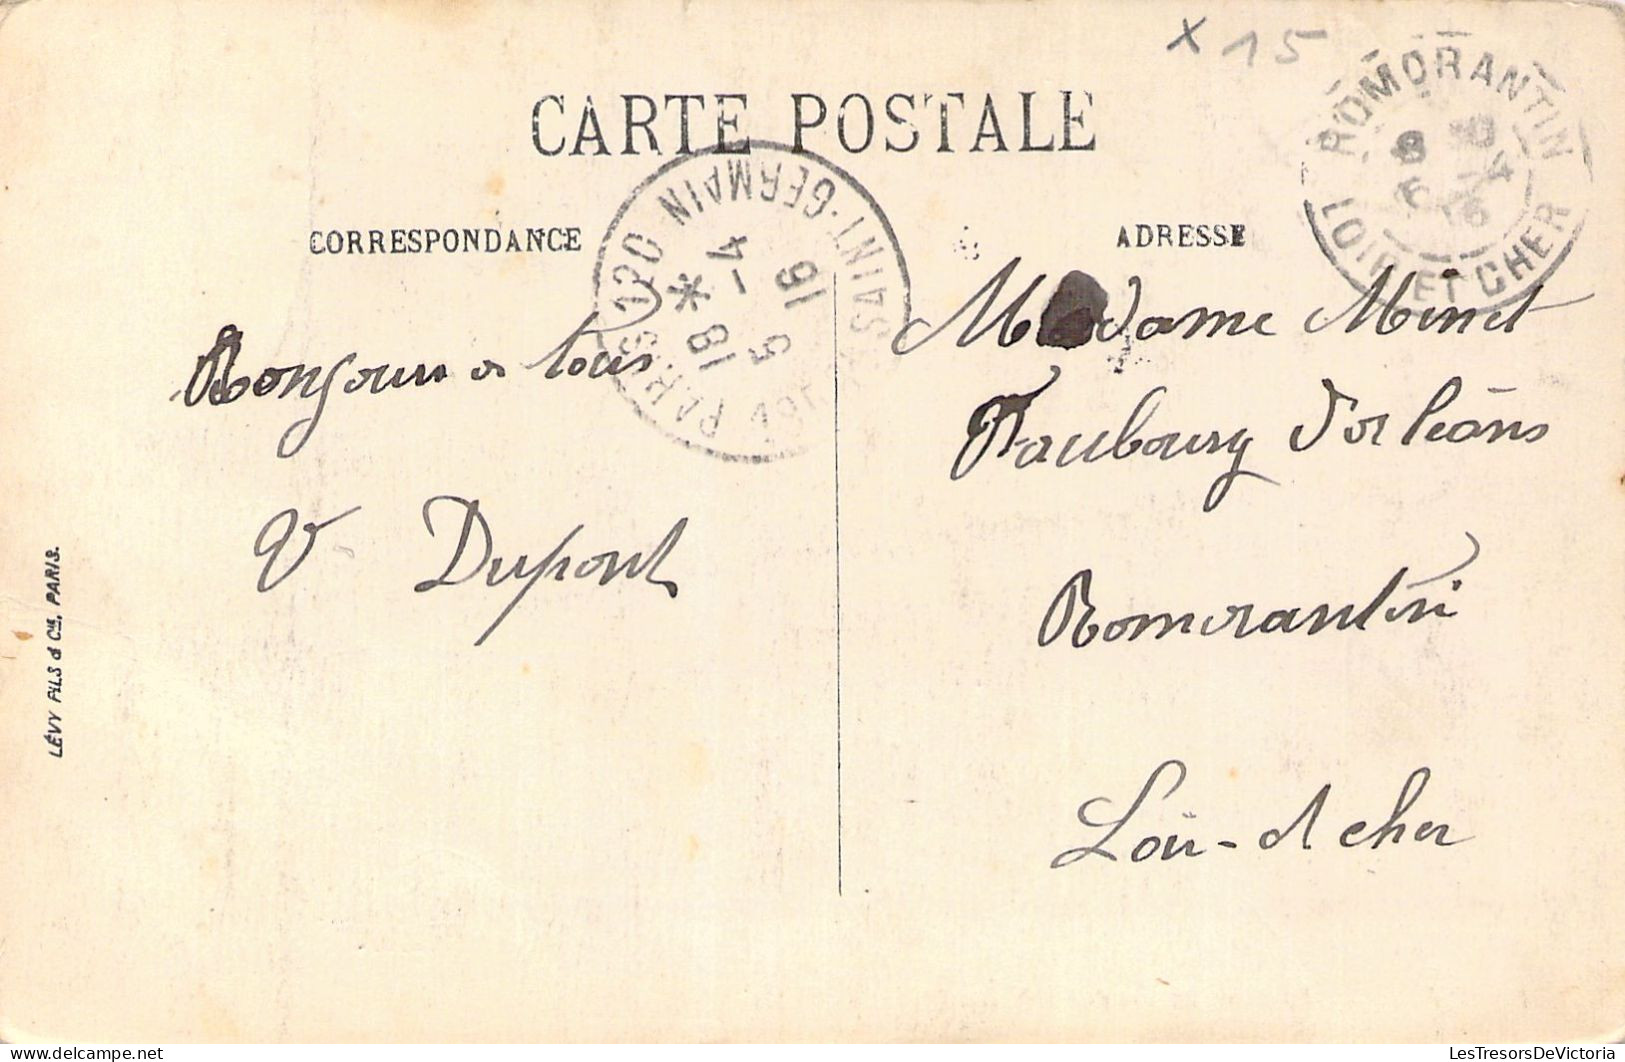 × 15
CARTE POSTALE
ROMORANTIN
8 30
6 - 4
16
LOIR ET CHER
CORRESPONDANCE
PARIS 120
SAINT-GERMAIN
18
5 - 4
16
ADRESSE
Bonjour a tous
V Dupont
LÉVY FILS & Cie, PARIS.
Madame Minet
Faubourg d'orléans
Romorantin
Loir-et cher
www.LesTresorsDeVictoria